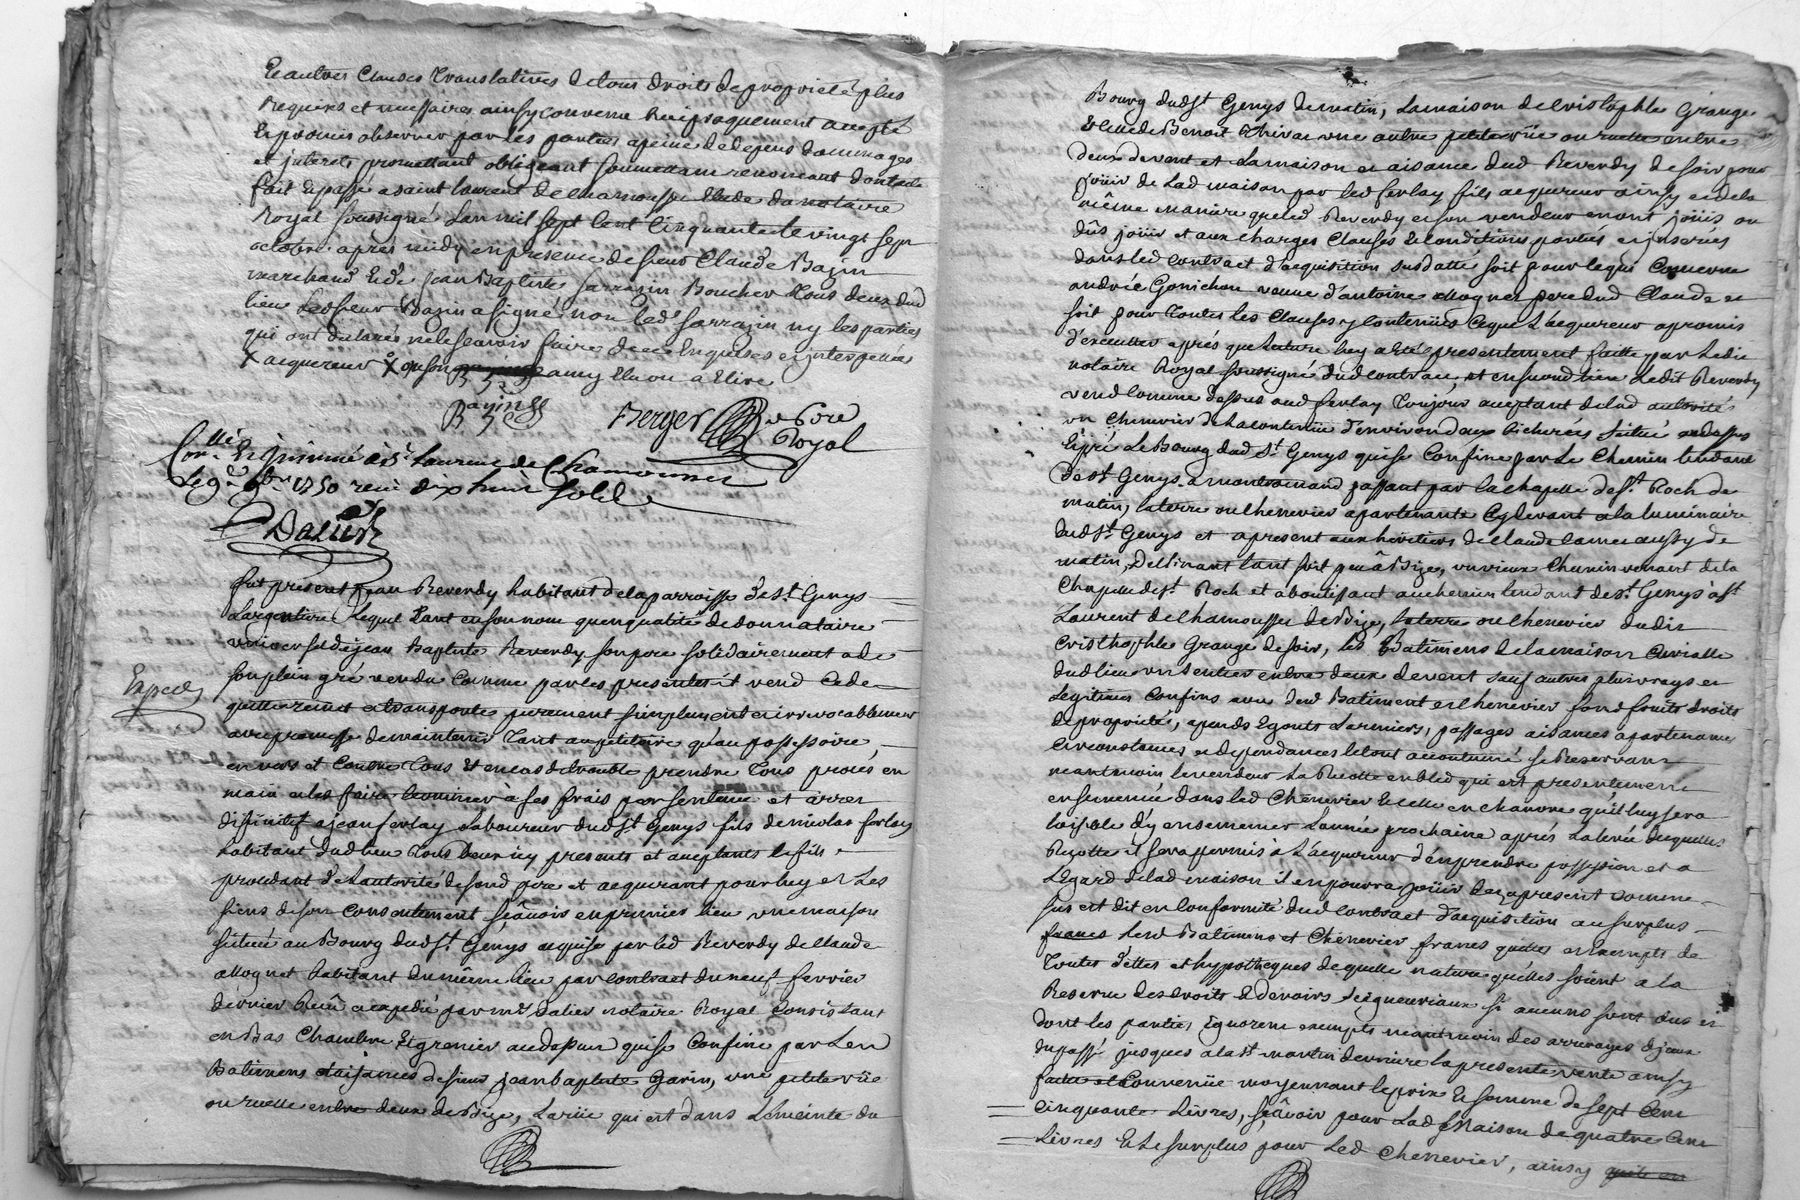 Et autres clauses translatives de tous droits de propriété plus
requises et necessaires ainsy convenu reciproquement accepté
et promis observer par les parties a peine de depens dommages
et jnterets promettant obligeant soumettant renonceant dont acte
fait et passé a saint laurent de chamousse Etude du notaire
Royal soussigné L'an mil sept Cent Cinquante et le vingt sept
octobre apres midy en presence de sieur Claude Bazin
marchand et de Jean Baptiste sarrazin Boucher tous deux dud
lieu Led sieur Bazin a signé non led sarrazin ny les parties
qui ont declarés ne le scavoir faire de ce Enquises et jnterpellées
x acquereur x ou son amy Elu ou a Elire
Bazin
Berger no.re
Royal
Con.llé Et jnsinué a S.t Laurent de Chamousset
Le 9.e 9.bre 1750 receu dix huit sols
Dalier
Fut présent jean Reverdy habitant de la parroisse de S.t Genys
Largentiere Lequel tant en son nom qu'en qualité de donnataire
universel de jean Baptiste Reverdy son pere solidairement a de
Exped
son plein gré vendu Comme par les presentes il vend Cede
quitte remet et transporte purement simplement et irrevocablement
avec promesse de maintenir tant au petitoire qu'au possessoire,
envers et Contre tous Et en cas de trouble prendre tous procés en
main et les faire terminer à ses frais par sentence et arrer
difinitif a jean ferlay Laboureur dud S.t Genys fils de nicolas ferlay
habitant dud lieu tous deux icy presents et acceptants le fils
procedant de L'autorité de sond pere et acquerant pour luy et Les
siens de son Consentement sçâvoir en premier lieu une maison
située au Bourg dud S.t Genys acquise par led Reverdy de Claude
Mognet habitant du même lieu par contract du neuf fevrier
dernier Reçû et expedié par M.e Dalier notaire Royal Consistant
en Bas Chambre Et grenier au dessus qui se Confine par Les
Batimens et aisances de sieur jean baptiste Garin, une petite rûe
ou ruelle entre deux de Bize, La rüe qui est dans L'enceinte du
Bourg dud S.t Genys de matin, La maison de Cristophle Grange
et celle de Benoit une autre petite rüe ou ruelle entre
deux de vent et La maison et aisance dud Reverdy de soir pour
joüir de Lad maison par led ferlay fils acquereur ainsy et de la
même maniere que led Reverdy et son vendeur en ont joüis ou
dûs joüir et aux charges Clauses Et Conditions portées et jnserées
dans led contract d'acquisition susdatté soit pour ce qui Concerne
andrée Gonichon veuve d'antoine Mognet pere dud Claude et
soit pour toutes les Clauses y contenües Ce que L'acquereur a promis
d'executter aprés que lecture luy a été presentement faitte par Ledit
notaire Royal soussigné dud contract, et en second lieu Ledit Reverdy
vend comme dessus aud ferlay toujours acceptant de lad autorité
un chenevier de la contenüe d'environ deux bicherées situé
Et pré Le Bourg dud S.t Genys qui se Confine par Le Chemin tendant
de S.t Genys a montromand passant par la chapelle de S.t Roch de
matin, la terre ou chenevier apartenante Cy devant a la luminaire
dud S.t Genys et a present aux heritiers de Claude aussy de
matin, Declinant tant soit peu à Bize, un vieux Chemin venant de la
Chapelle de S.t Roch et aboutissant au chemin tendant de S.t Genys à S.t
Laurent de Chamousset de Bize, la terre ou chenevier dudit
Cristhophle Grange de soir, les Batimens de la maison Curialle
dud lieu un sentier entre deux de vent sauf autres plus vrays et
Legitimes Confins avec desd Batiment et chenevier fond fruits droits
de proprieté, apends Egouts Larmiers, passages aisances apartenances
circonstances et dependances le tout accoutumé se Reservant
neantmoin le vendeur La Recolte en bled qui est presentement
ensemencée dans led Chenevier Et celle en chanvre qu'il luy sera
loisible d'y ensemencer L'année prochaine aprés La levée desquelles
Recolte il sera permis a L'acquereur d'en prendre possession et a
L'egard de lad maison il en pourra joüir dez apresent comme
sus est dit en Conformité dud contract d'acquisition au surplus
francs Lesd Batimens et Chenevier francs quittes et Exempts de
toutes dettes et hypotheques de quelle nature qu'elles soient a la
Reserve des droits Et devoirs seigneuriaux si aucuns sont dus et
dont les parties Egnorent exempts neantmoin des arrerages d'jceux
du passé jusques a la S.t martin derniere la presente vente ainsy
faitte et Convenüe moyennant le prix Et somme de sept Cent
cinquante Livres, sçâvoir pour Lad Maison de quatre Cent
Livres Et Le surplus pour Led Chenevier, ainsy